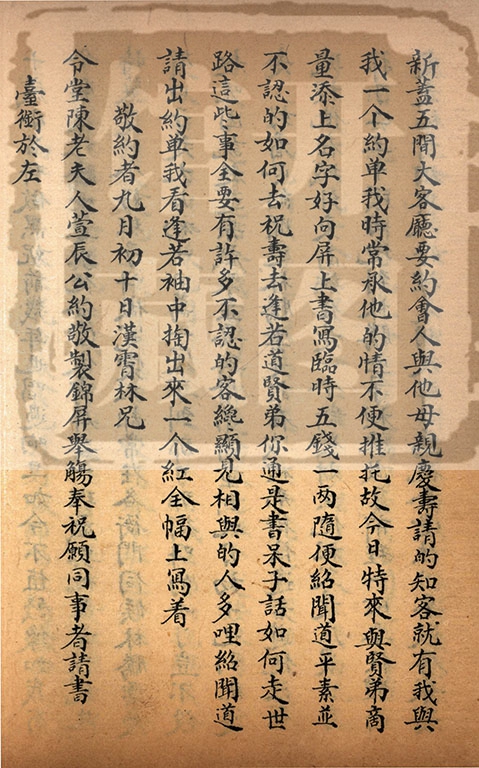 新蓋五間大客廳要約會人與他母親慶壽請的知客就有我與
我一个約单我時常承他的情不便推托故今日特來與賢弟商
量添上名字好向屏上書寫臨時五錢一两隨便紹聞道平素並
不認的如何去祝壽去逢若道賢弟你通是書呆子話如何走世
路這些事全要有許多不認的客總顯見相與的人多哩紹聞道
請出約单我看逢若袖中掏出來一个紅全幅上寫着
敬約者九月初十日漢霄林兄
令堂陳老夫人萱辰公約敬製錦屏舉觴奉祝願同事者請書
臺銜於左